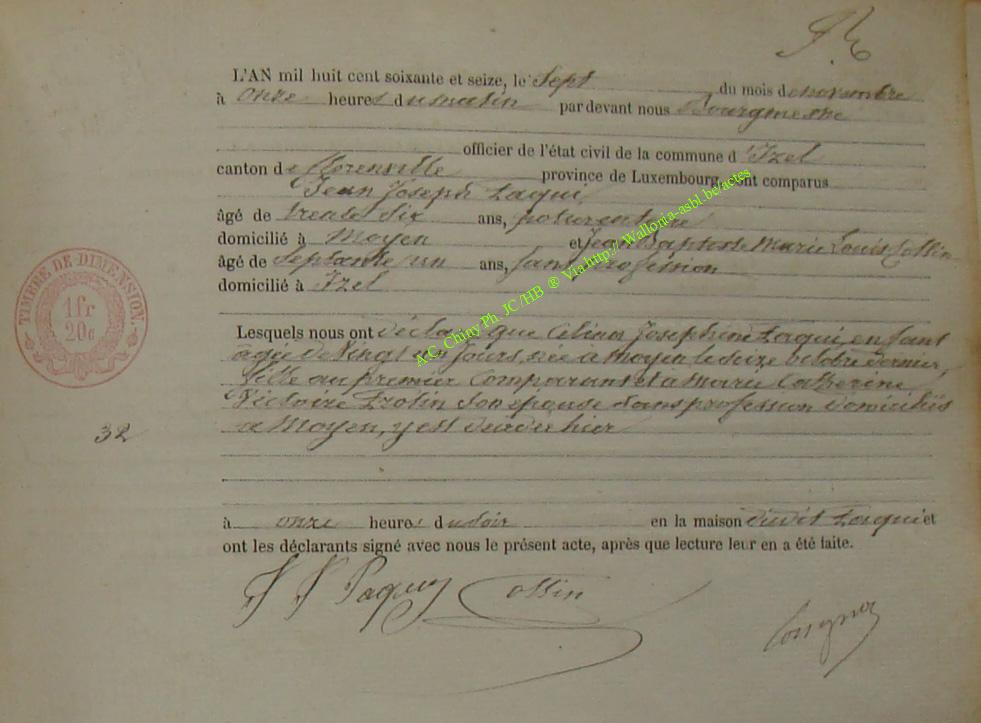 L'AN mil huit cent soixante et seize, le Sept
du mois de novembre
à onze heures du matin par devant nous Bourgmestre
officier de l'état civil de la commune d'Izel
canton de florenville province de Luxembourg, sont comparus
Jean Joseph Paqui
âgé de trente six ans,
domicilié à Moyen et Jean Baptiste Marie Louis Collin
âgé de Septante un ans, sans profession
domicilié à Izel
Lesquels nous ont déclaré que Celina Joséphine Paqui, enfant
agée de Vingt un jours, née à Moyen le seize octobre dernier,
fille au premier Comparant et à Marie Catherine
Victoire son épouse sans profession domiciliés
à Moyen, y est décédée hier
à onze heures du soir en la maison dudit Paqui et
ont les déclarants signé avec nous le présent acte, après que lecture leur en a été faite.
J J Paquy Collin
TIMBRE DE DIMENSION.
1 fr
20c
32
A.C. Chiny Ph. JC/HB ® Via http://Wallonia-asbl.be/actes